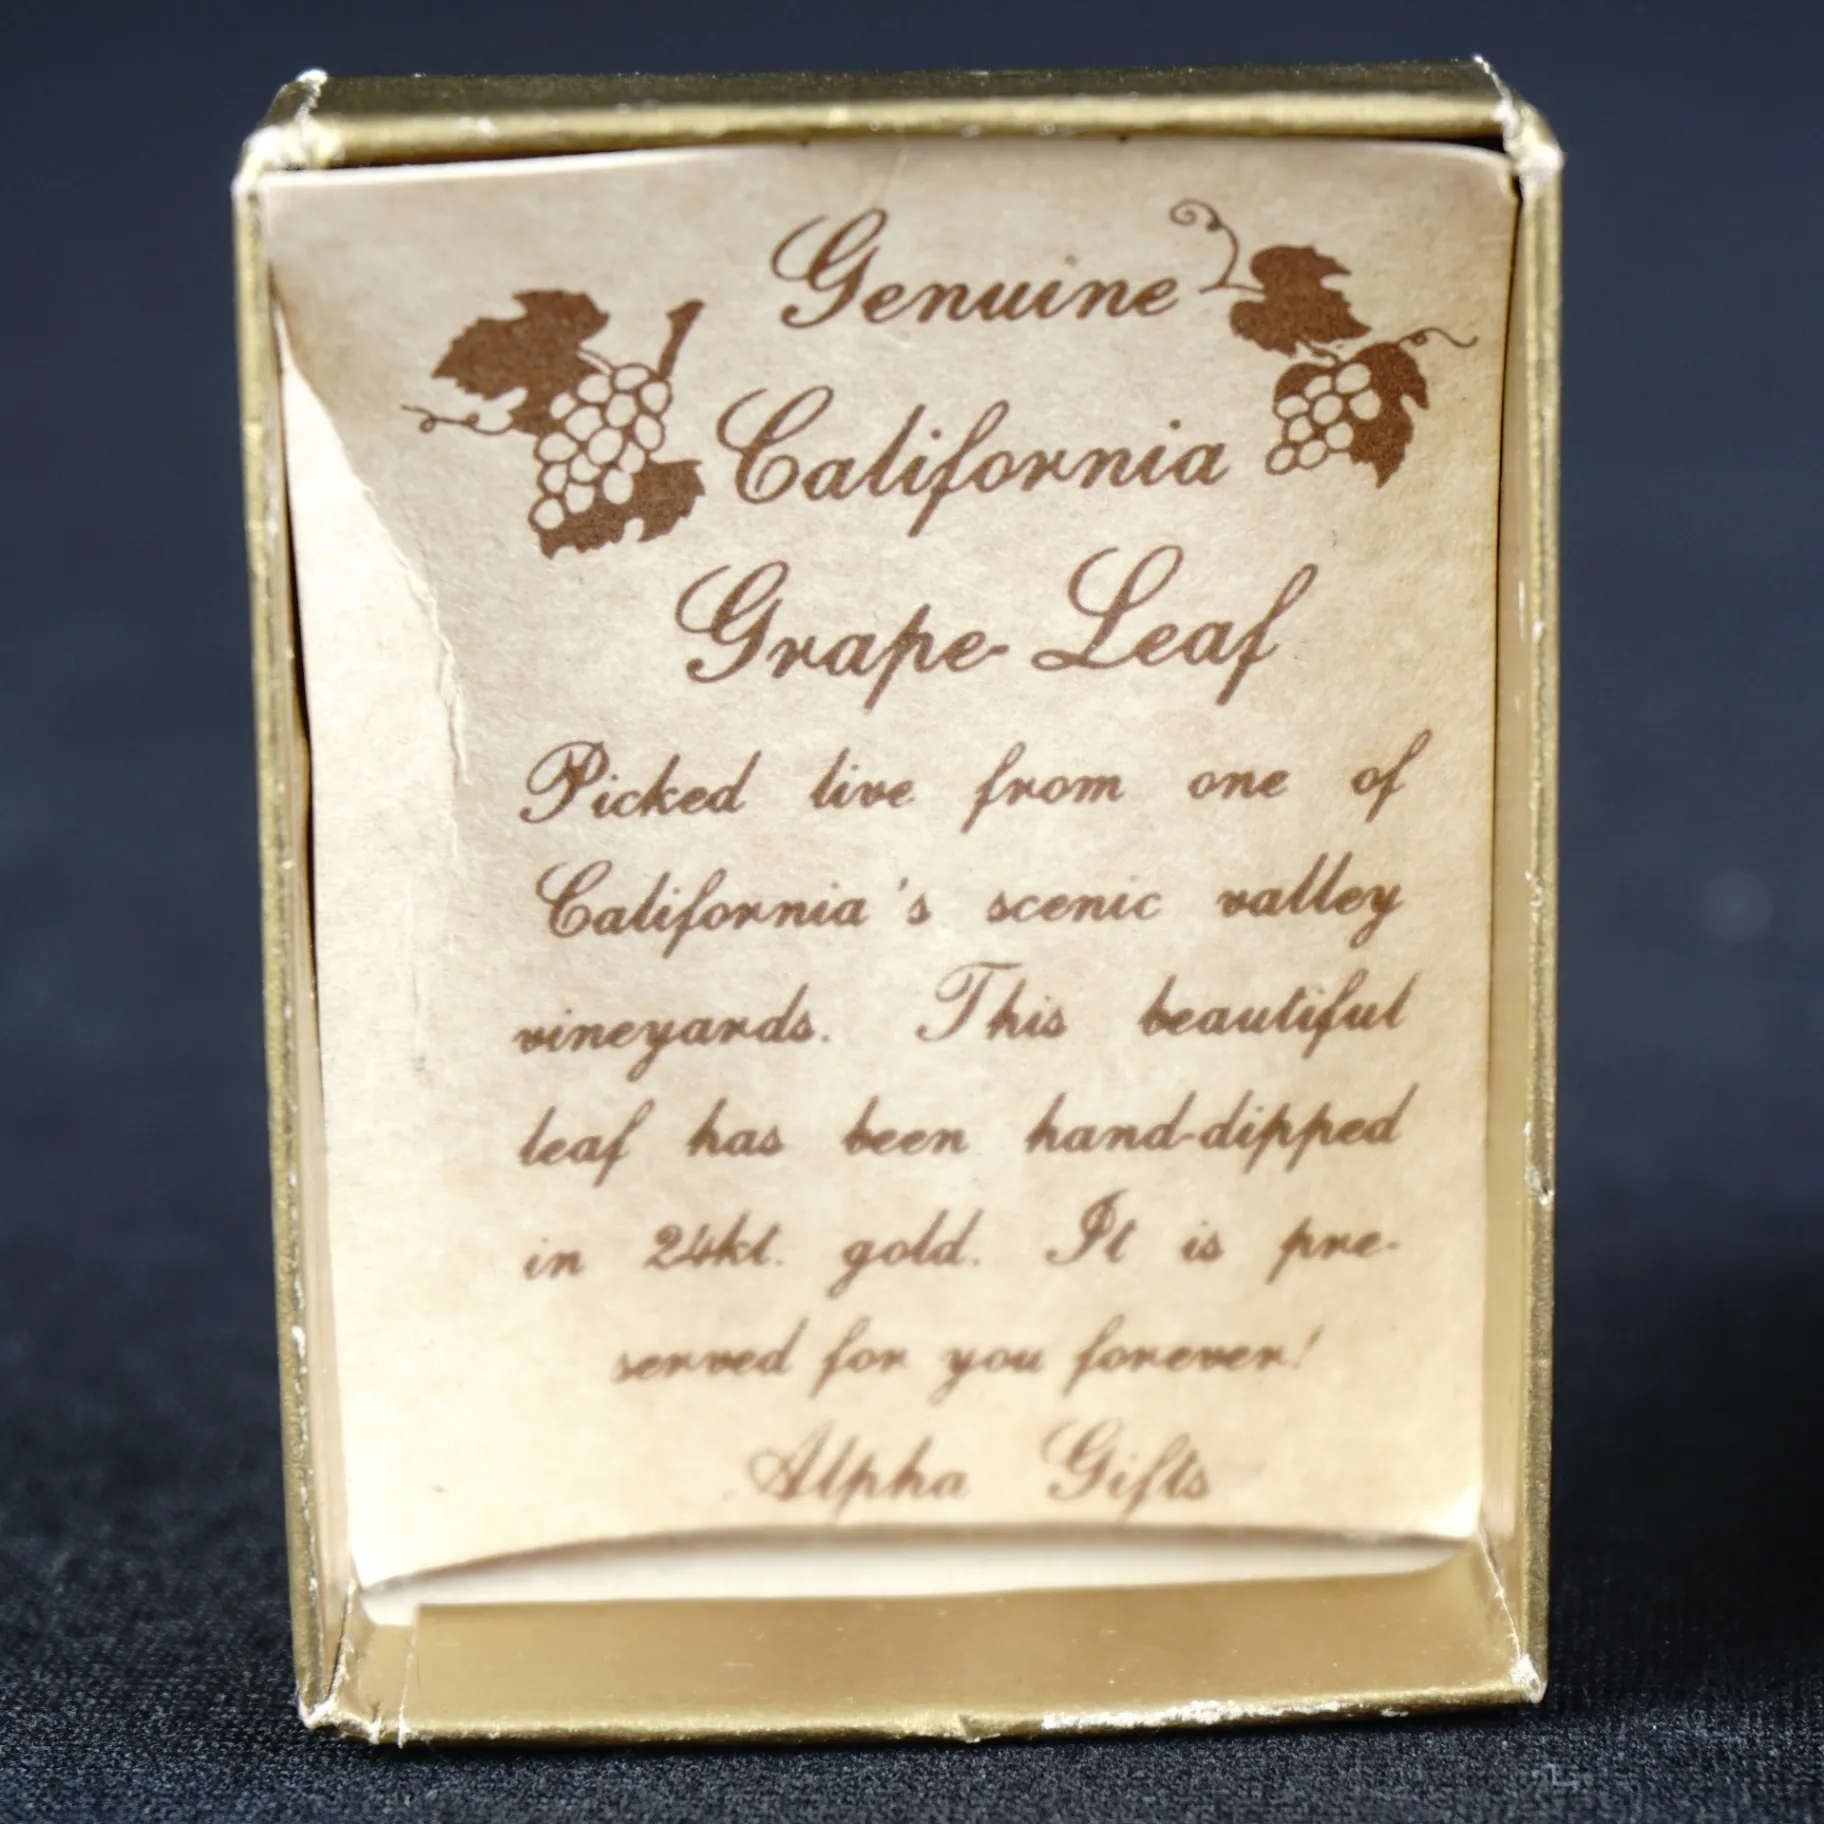 Genuine
California
Grape-Leaf
Picked live from one of
California's scenic valley
vineyards. This beautiful
leaf has been hand-dipped
in 24kt. gold. It is pre-
served for you forever!
Alpha Gifts